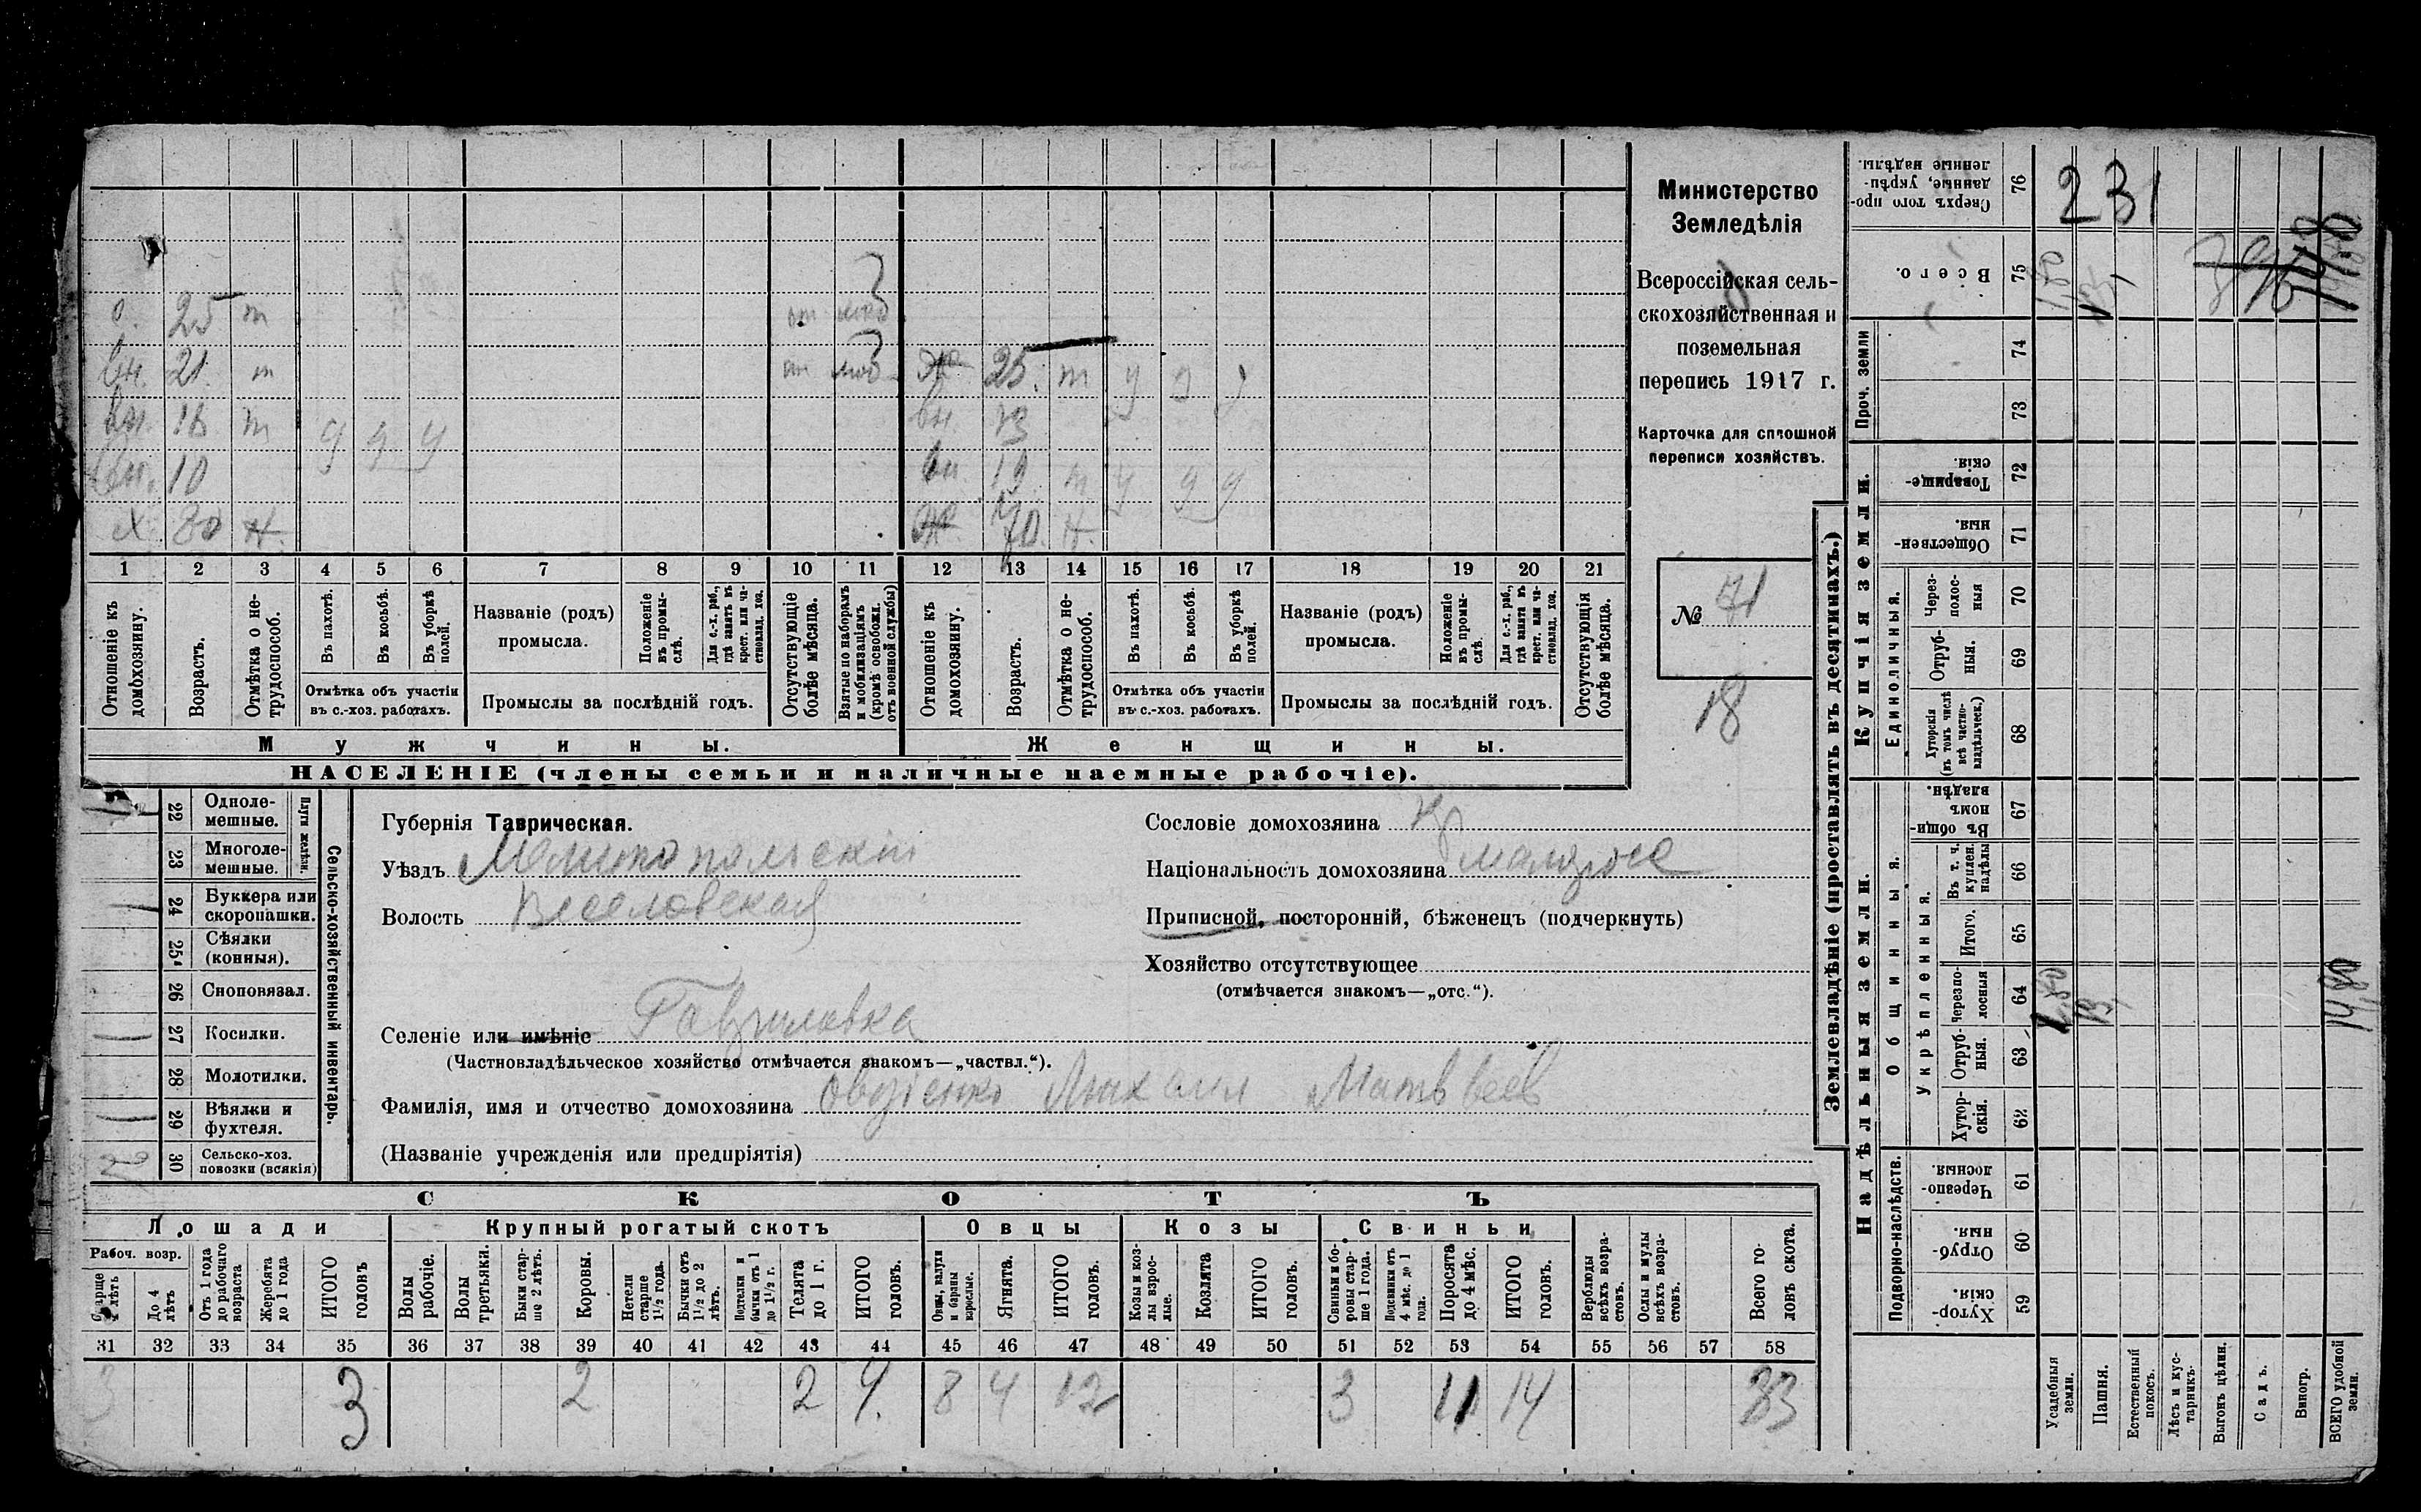 Министерство
Земледѣлія
Всероссійская сель-
скохозяйственная и
поземельная
перепись 1917 г.
Карточка для сплошной
переписи хозяйствъ.
№ 71
18
о. 25 т
вн. 21 т
вн. 16 т у у у
вн. 10
х 80 н.
ж 25. т у у у
вн. 13
вн. 19 т у у у
ж 70. н.
1 2 3 4 5 6 7 8 9 10 11 12 13 14 15 16 17 18 19 20 21
Отношеніе къ домохозяину.
Возрастъ.
Отмѣтка о не-трудоспособ.
Въ пахотѣ.
Въ косьбѣ.
Въ уборкѣ полей.
Отмѣтка объ участіи
въ с.-хоз. работахъ.
Названіе (родъ)
промысла.
Положеніе въ промы-слѣ.
Для с.-х. раб., гдѣ занятъ въ крест. или ча-стновлад. хоз.
Промыслы за послѣдній годъ.
Отсутствующіе болѣе мѣсяца.
Взятые по наборамъ и мобилизаціямъ (кромѣ освобожд. отъ военной службы)
Отношеніе къ домохозяину.
Возрастъ.
Отмѣтка о не-трудоспособ.
Въ пахотѣ.
Въ косьбѣ.
Въ уборкѣ полей.
Отмѣтка объ участіи
въ с.-хоз. работахъ.
Названіе (родъ)
промысла.
Положеніе въ промы-слѣ.
Для с.-х. раб., гдѣ занята въ крест. или ча-стновлад. хоз.
Промыслы за послѣдній годъ.
Отсутствующія болѣе мѣсяца.
Мужчины.
Женщины.
НАСЕЛЕНІЕ (члены семьи и наличные наемные рабочіе).
Сельско-хозяйственный инвентарь.
Плуги желѣзн.
22 Одноле-мешные.
23 Многоле-мешные.
24 Буккера или скоропашки.
25 Сѣялки (конныя).
26 Сноповязал.
27 Косилки.
28 Молотилки.
29 Вѣялки и фухтеля.
30 Сельско-хоз. повозки (всякія)
Губернія Таврическая.
Уѣздъ Мелитопольскій
Волость Веселовская
Селеніе или имѣніе Гавриловка
(Частновладѣльческое хозяйство отмѣчается знакомъ—„частвл.“).
Фамилія, имя и отчество домохозяина Овдіенко Михаил Матвѣев
(Названіе учрежденія или предпріятія)
Сословіе домохозяина кр
Національность домохозяина малорос
Приписной, посторонній, бѣженецъ (подчеркнуть)
Хозяйство отсутствующее
(отмѣчается знакомъ—„отс.“).
СКОТЪ
Лошади
Крупный рогатый скотъ
Овцы
Козы
Свиньи
Рабоч. возр.
Старше 4 лѣтъ
До 4 лѣтъ
Отъ 1 года до рабочаго возраста
Жеребята до 1 года
ИТОГО головъ
Волы рабочіе.
Волы третьяки.
Быки стар-ше 2 лѣтъ.
Коровы.
Нетели старше 1½ года.
Бычки отъ 1½ до 2 лѣтъ.
Подтелки и бычки отъ 1 до 1½ г.
Телята до 1 г.
ИТОГО головъ.
Овцы, валухи и бараны взрослые.
Ягнята.
ИТОГО головъ.
Козы и коз-лы взрос-лые.
Козлята
ИТОГО головъ.
Свиньи и бо-ровы стар-ше 1 года.
Подсвинки отъ 4 мѣс. до 1 года.
Поросята до 4 мѣс.
ИТОГО головъ.
Верблюды всѣхъ возра-стовъ.
Ослы и мулы всѣхъ возра-стовъ.
Всего го-ловъ скота.
31 32 33 34 35 36 37 38 39 40 41 42 43 44 45 46 47 48 49 50 51 52 53 54 55 56 57 58
3 3 2 2 4. 8 4 12 3 11 14 33
Землевладѣніе (проставлять въ десятинахъ.)
Надѣльныя земли.
Купчія земли.
Проч. земли
Подворно-наслѣдств.
Общинныя.
Укрѣпленныя.
Единоличныя.
Сверхъ того про-данные, укрѣп-ленные надѣлы. 76 231
Всего. 75
74
73
Товарище-скія. 72
Обществен-ныя. 71
Через-полос-ныя 70
Отруб-ныя. 69
Хуторскія (въ томъ числѣ всѣ частно-владѣльческ.) 68
Въ общин-номъ владѣн. 67
Въ т. ч. куплен. надѣлы 66
Итого. 65
Черезпо-лосныя 64 1,80 13, 14,80
Отруб-ныя. 63
Хутор-скія. 62
Черезпо-лосныя 61
Отруб-ныя. 60
Хутор-скія. 59
Усадебныя земли.
Пашня.
Естественный покосъ.
Лѣсъ и кус-тарникъ.
Выгонъ цѣлин.
Садъ.
Виногр.
ВСЕГО удобной земли.